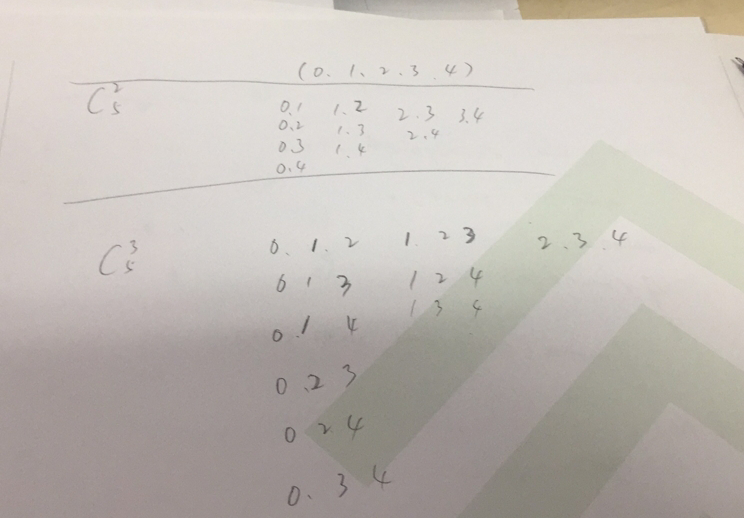 (0. 1、2.3.4)
C₅² 0.1 1.2 2.3 3.4
0.2 1.3 2.4
0.3 1.4
0.4
C₅³ 0. 1. 2 1. 2 3 2.3.4
0 1 3 1 2 4
1 3 4
0.1 4
0.2 3
0 2 4
0. 3 4